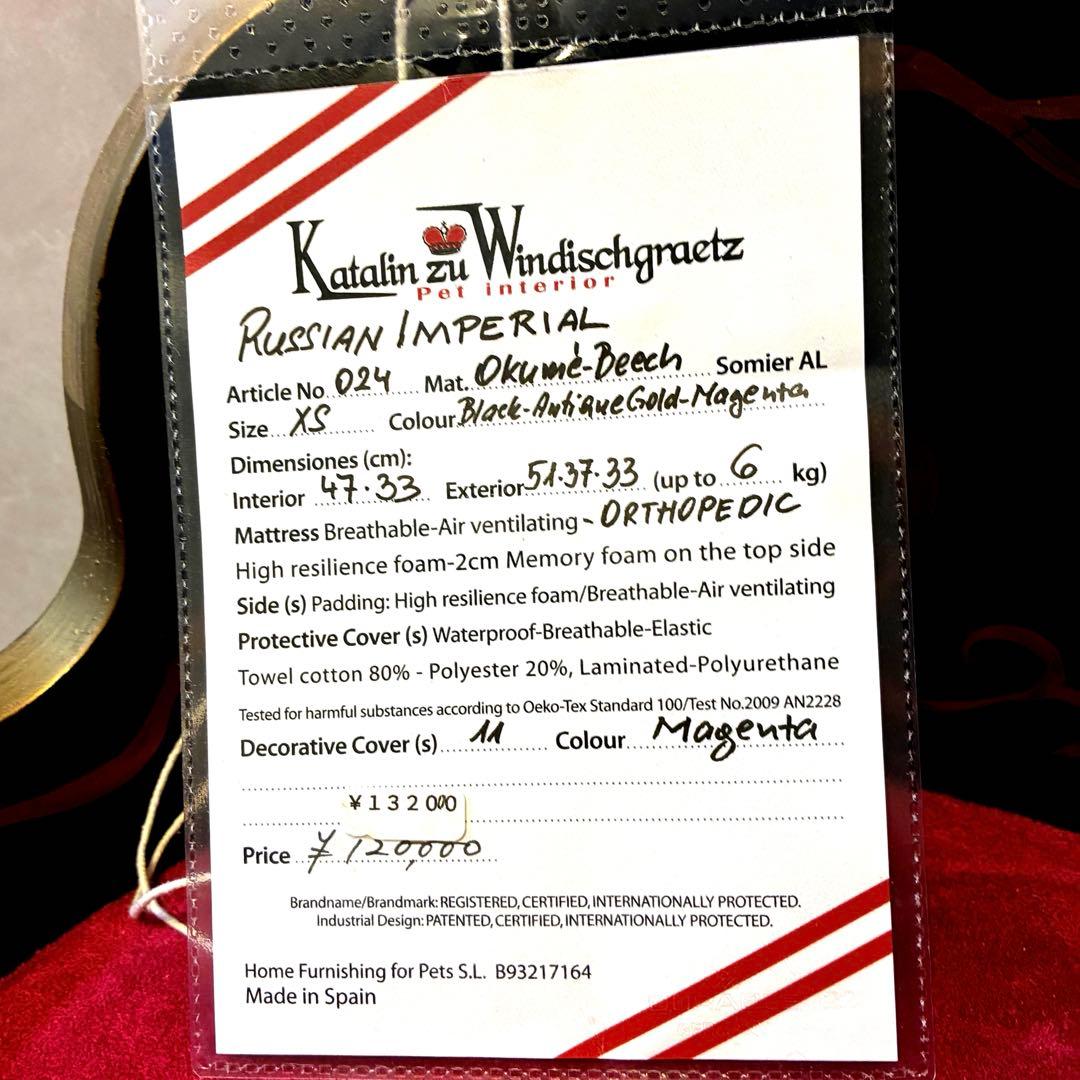 Katalin zu Windischgraetz
Pet interior
RUSSIAN IMPERIAL
Article No. 024 Mat. Okumé-Beech Somier AL
Size XS Colour Black-Antique Gold-Magenta
Dimensiones (cm):
Interior 47·33 Exterior 51·37·33 (up to 6 kg)
Mattress Breathable-Air ventilating - ORTHOPEDIC
High resilience foam-2cm Memory foam on the top side
Side (s) Padding: High resilience foam/Breathable-Air ventilating
Protective Cover (s) Waterproof-Breathable-Elastic
Towel cotton 80% - Polyester 20%, Laminated-Polyurethane
Tested for harmful substances according to Oeko-Tex Standard 100/Test No.2009 AN2228
Decorative Cover (s) 11 Colour Magenta
¥132000
Price ¥120,000
Brandname/Brandmark: REGISTERED, CERTIFIED, INTERNATIONALLY PROTECTED.
Industrial Design: PATENTED, CERTIFIED, INTERNATIONALLY PROTECTED.
Home Furnishing for Pets S.L. B93217164
Made in Spain